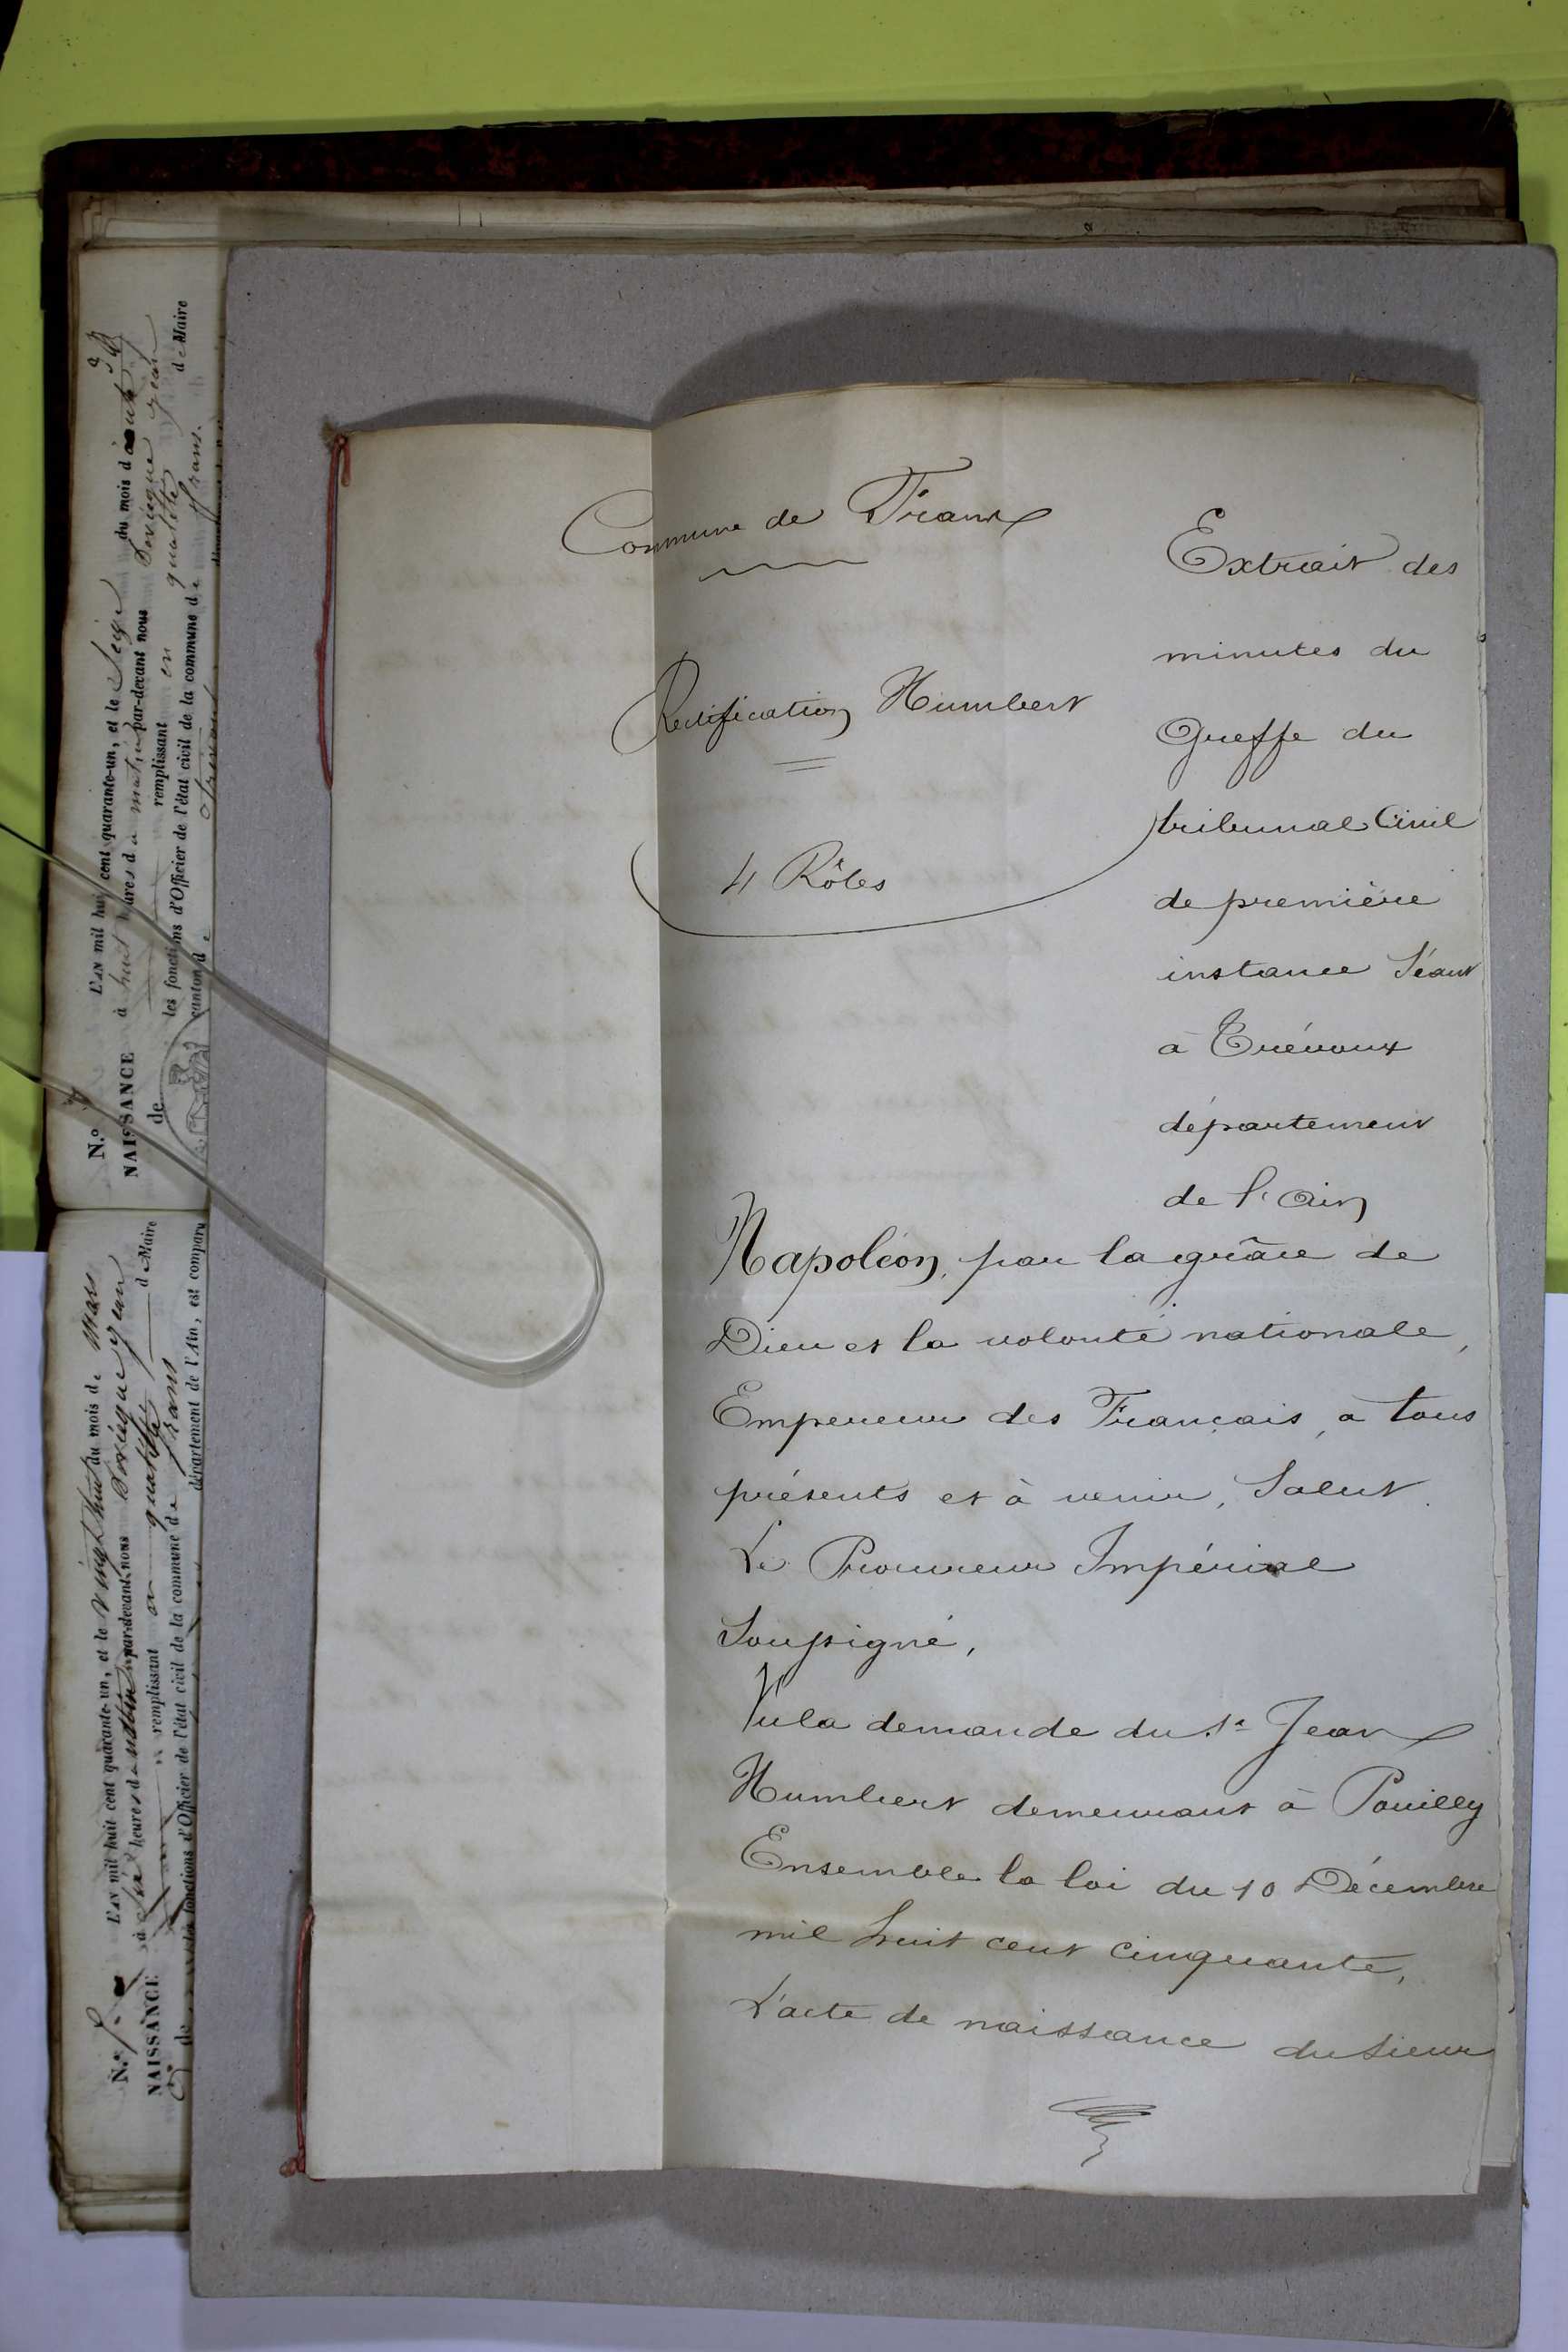 Commune de Frans
Rectification Humbert
4 Rôles
Extrait des
minutes du
Greffe du
tribunal Civil
de première
instance Séant
à Trévoux
département
de l'Ain
Napoléon, par la grâce de
Dieu et la volonté nationale,
Empereur des Français, à tous
présents et à venir, Salut.
Le Procureur Impérial
Soussigné,
Vu la demande du Sr Jean
Humbert demeurant à Pouilly
Ensemble la loi du 10 Décembre
mil huit cent cinquante,
L'acte de naissance du Sieur
N.o
NAISSANCE
de
L'AN mil huit cent quarante-un, et le Seize du mois d'aout
à huit heures d u matin par-devant nous Jean
remplissant en qualité d e Maire
les fonctions d'Officier de l'état civil de la commune d e frans.
canton d e
N.o
NAISSANCE
de
L'AN mil huit cent quarante-un, et le vingt huit du mois d e Mars
à Six heures du matin par-devant nous Jean
remplissant en qualité d e Maire
les fonctions d'Officier de l'état civil de la commune d e frans
département de l'Ain, est comparu